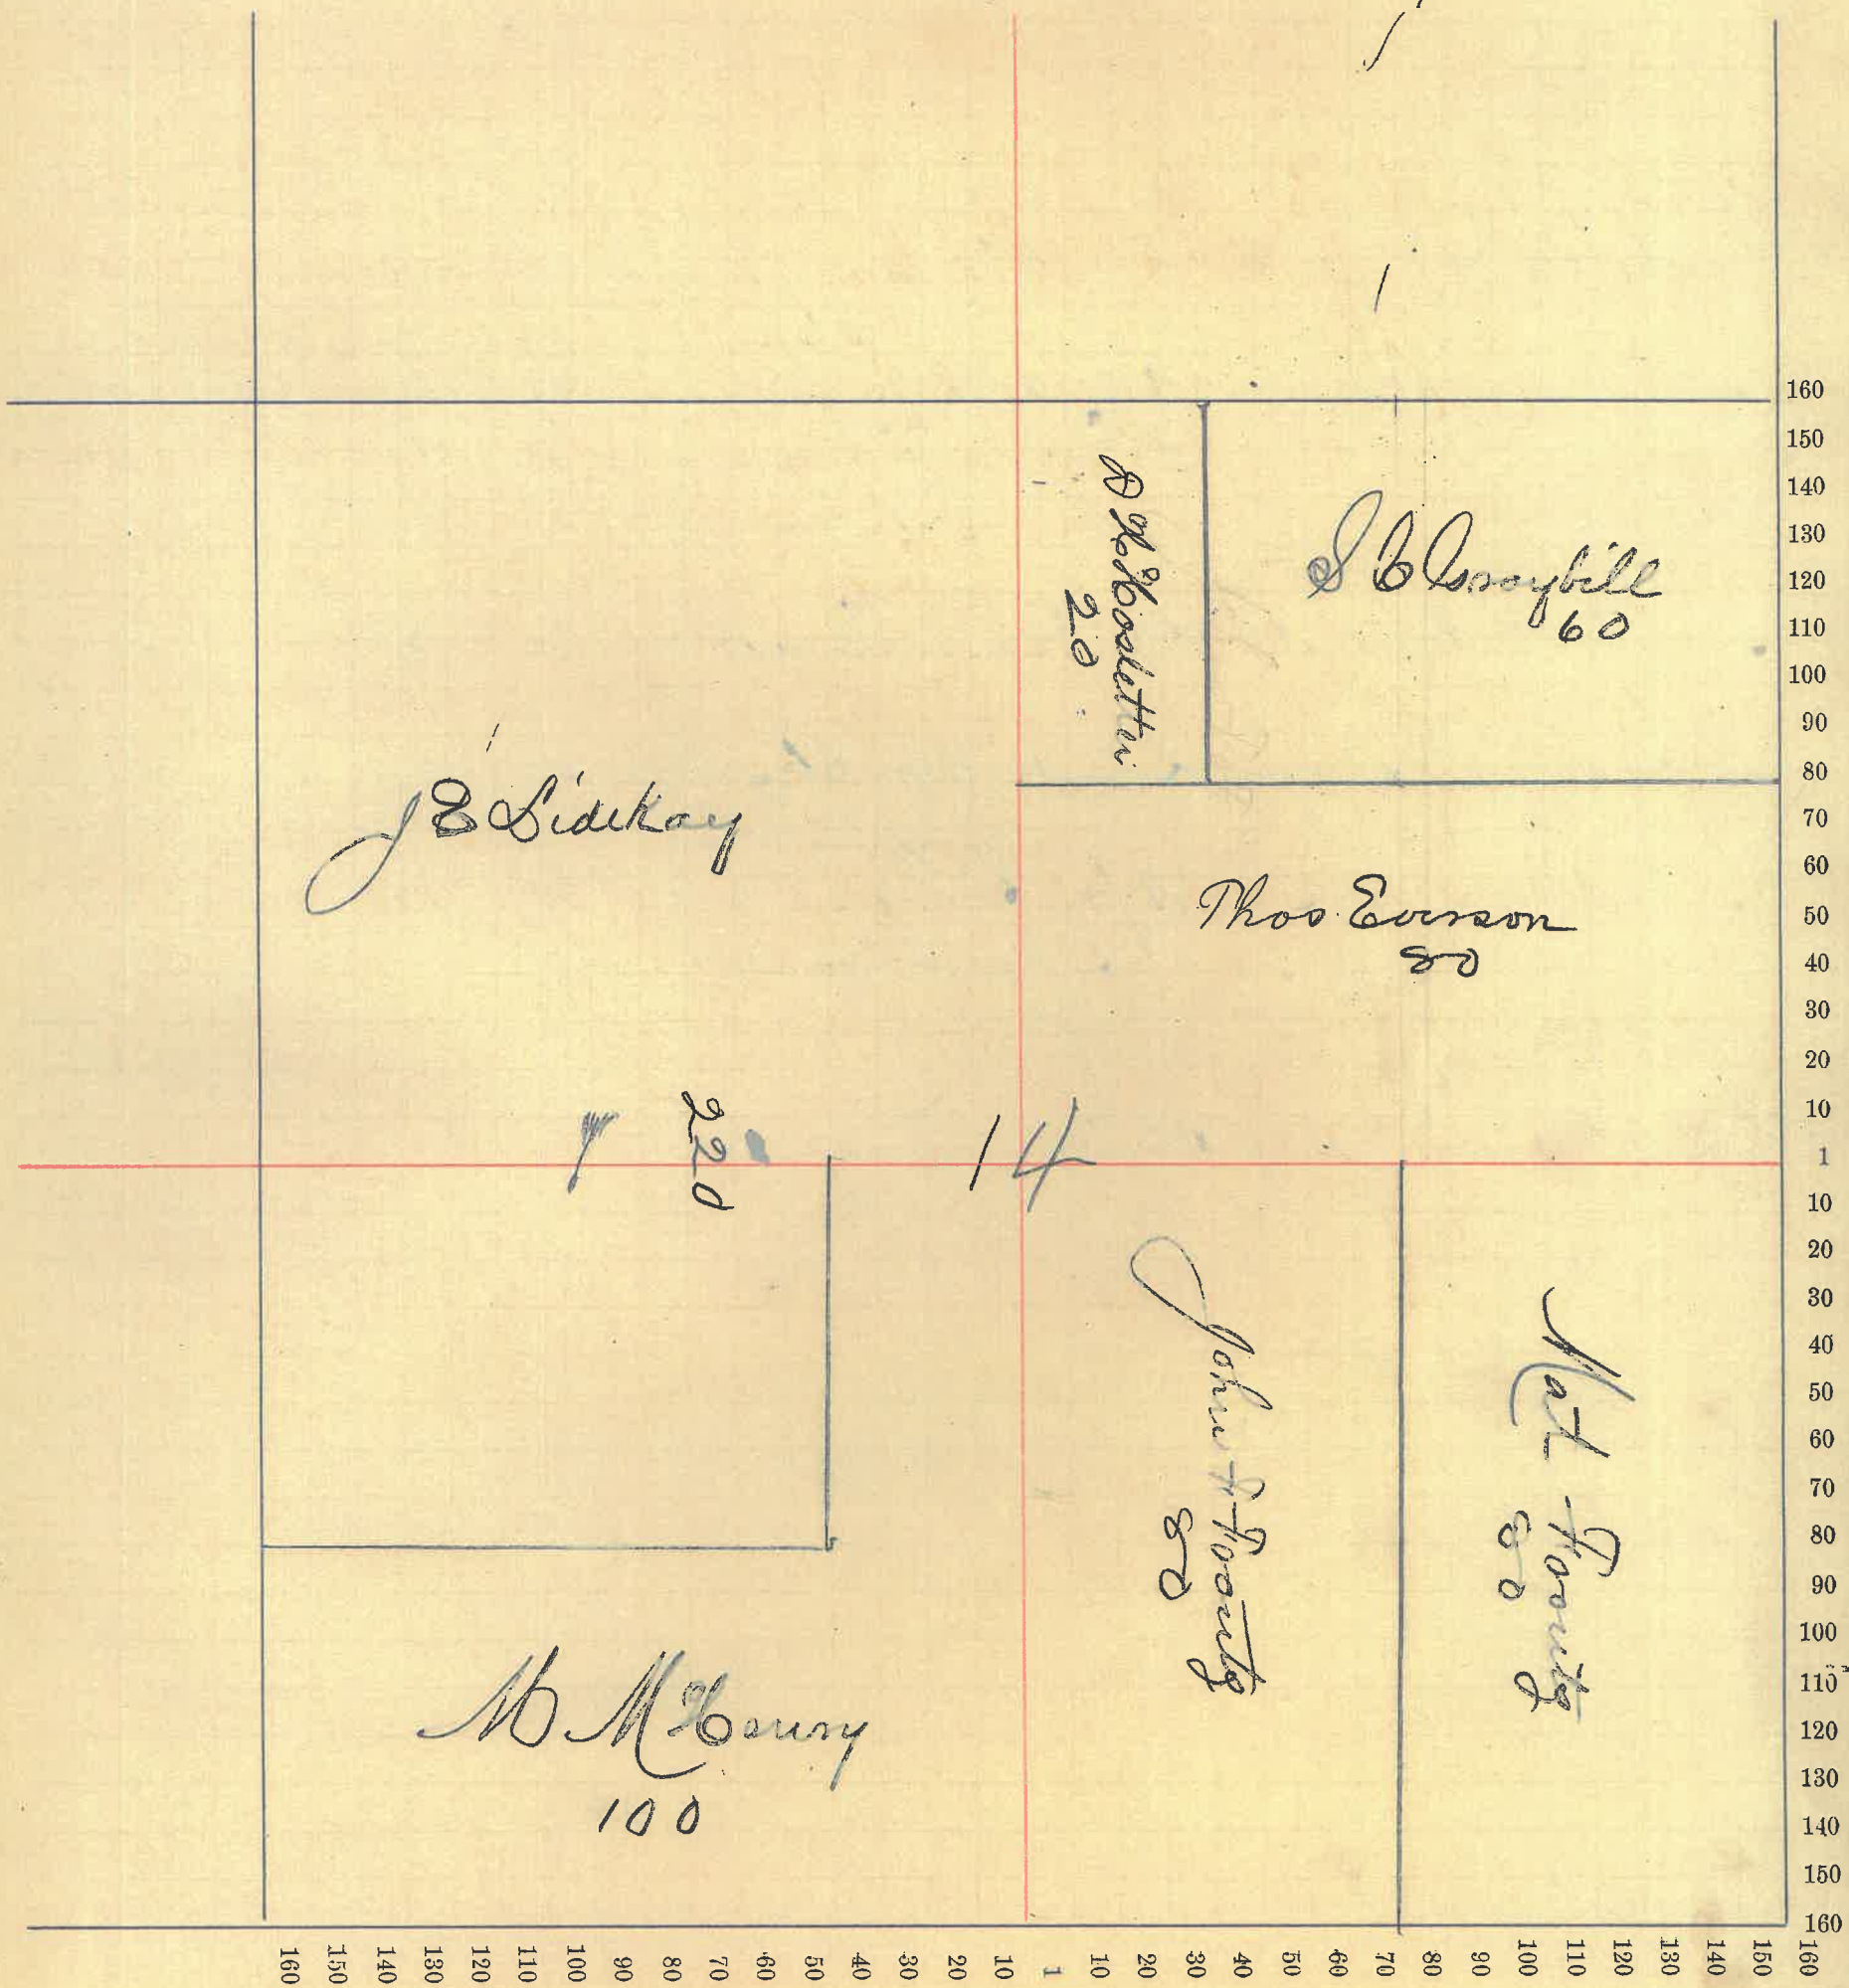 D H Hostetter
20
S E Graybill
60
J E Sidekay
220
Thos Everson
80
14
John F Foontz
80
Nat Foontz
80
M M Henry
100
160
150
140
130
120
110
100
90
80
70
60
50
40
30
20
10
1
10
20
30
40
50
60
70
80
90
100
110
120
130
140
150
160
160 150 140 130 120 110 100 90 80 70 60 50 40 30 20 10 1 10 20 30 40 50 60 70 80 90 100 110 120 130 140 150 160